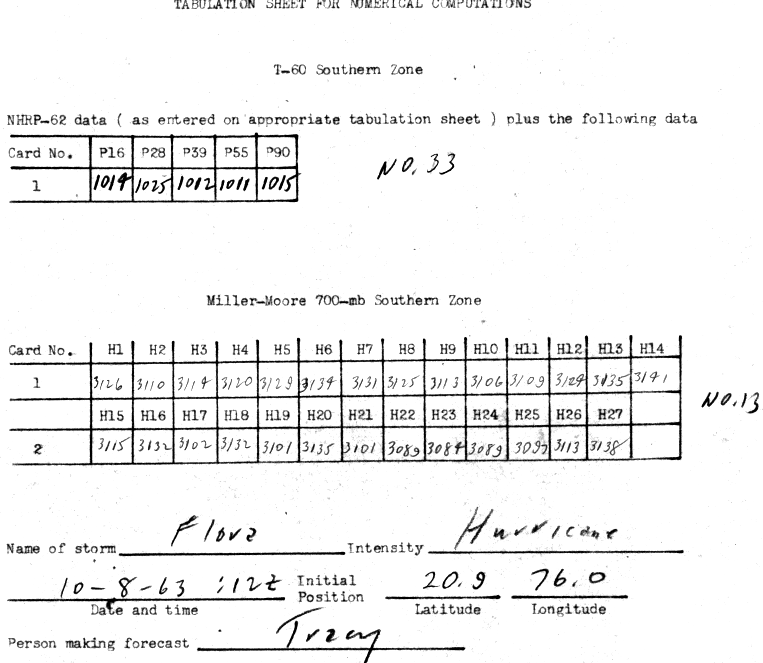 TABULATION SHEET FOR NUMERICAL COMPUTATIONS
T-60 Southern Zone
NHRP-62 data ( as entered on appropriate tabulation sheet ) plus the following data
Card No. P16 P28 P39 P55 P90
1 1014 1025 1012 1011 1015
NO. 33
Miller-Moore 700-mb Southern Zone
Card No. H1 H2 H3 H4 H5 H6 H7 H8 H9 H10 H11 H12 H13 H14
1 3126 3110 3114 3120 3129 3134 3131 3125 3113 3106 3109 3124 3135 3141
NO. 13
H15 H16 H17 H18 H19 H20 H21 H22 H23 H24 H25 H26 H27
2 3115 3132 3102 3132 3101 3135 3101 3089 3084 3089 3097 3113 3138
Name of storm Flora Intensity Hurricane
10-8-63 :12Z Initial Position 20.9 76.0
Date and time Latitude Longitude
Person making forecast Tracy